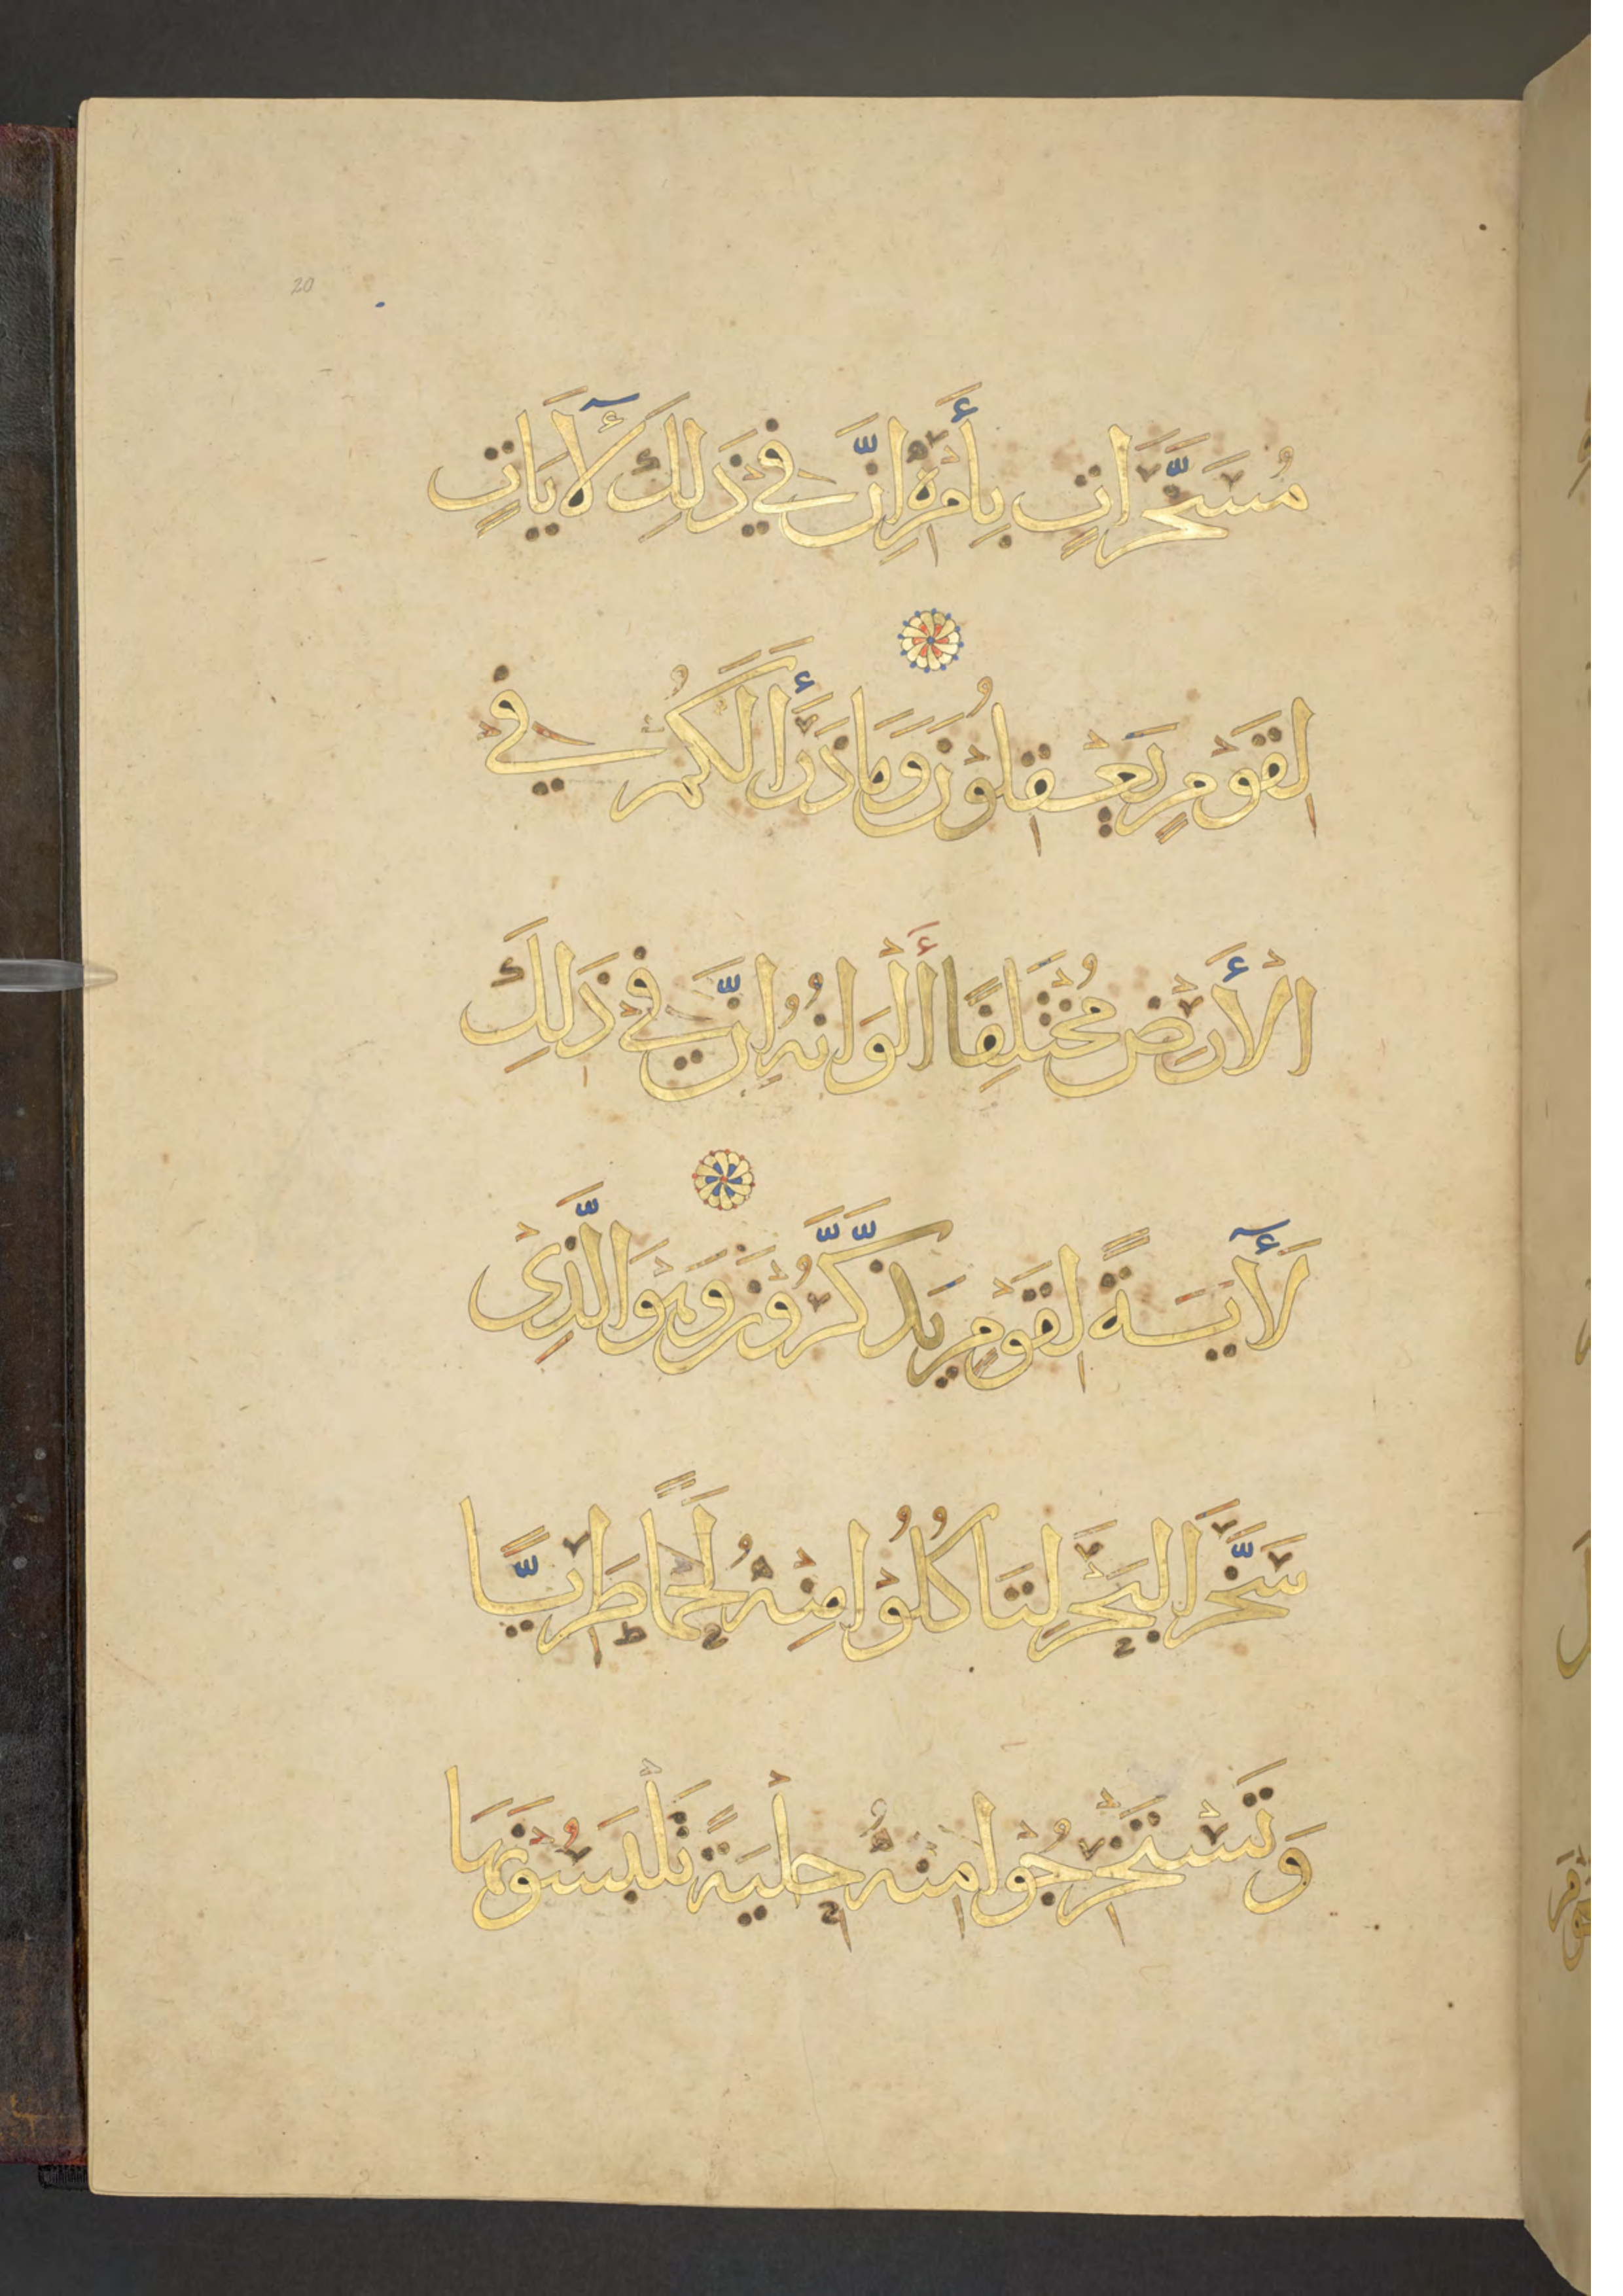 20
مُسَخَّرَاتٍ بِأَمْرِهِ إِنَّ فِي ذَلِكَ لَآيَاتٍ
لِقَوْمٍ يَعْقِلُوْنَ وَمَا ذَرَأَ لَكُمْ فِي
الْأَرْضِ مُخْتَلِفًا أَلْوَانُهُ إِنَّ فِي ذَلِكَ
لَآيَةً لِقَوْمٍ يَذَّكَّرُوْنَ وَهُوَ الَّذِي
سَخَّرَ الْبَحْرَ لِتَاكُلُوْا مِنْهُ لَحْمًا طَرِيًّا
وَتَسْتَخْرِجُوْا مِنْهُ حِلْيَةً تَلْبَسُوْنَهَا